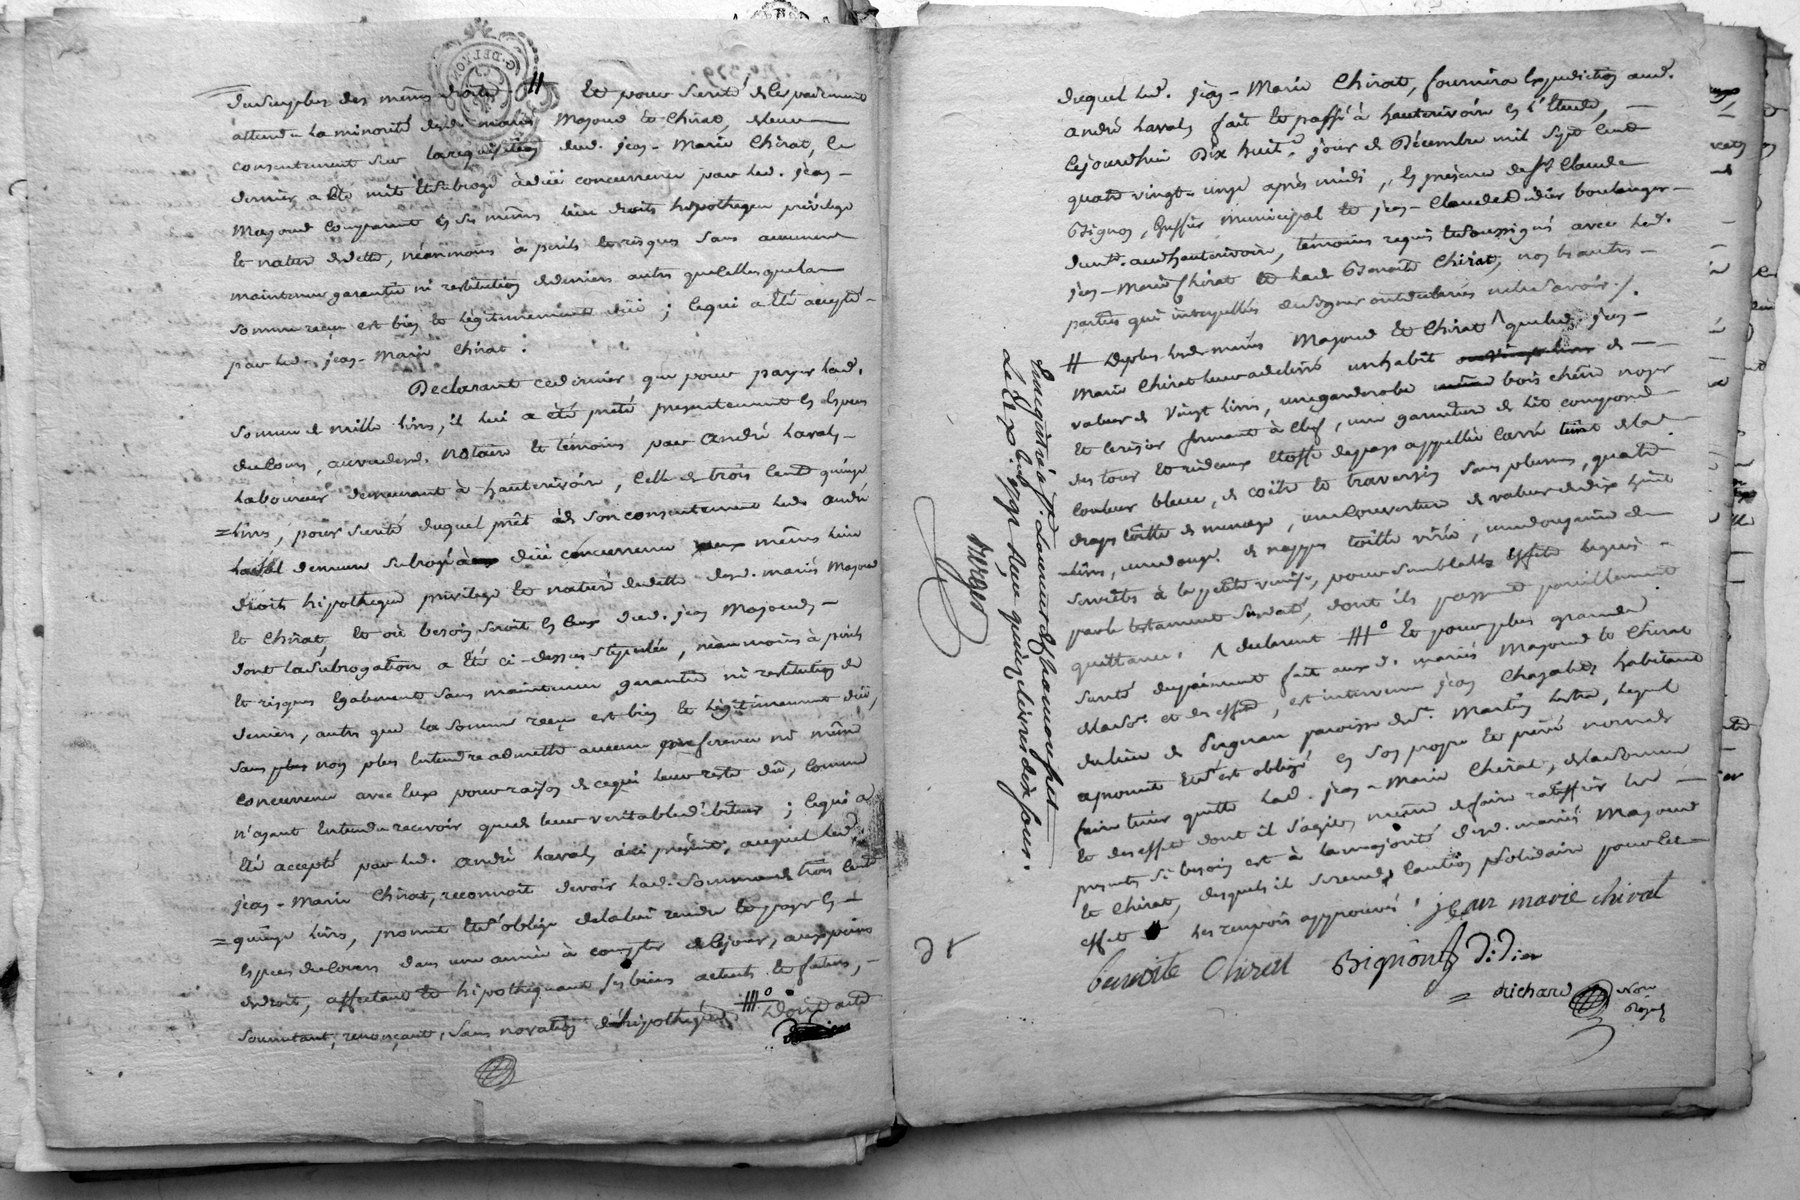 du surplus des mêmes droits # Et pour sureté de ce payement
attendu la minorité desd. mariés Majoud et Chirat, de leur
consentement sur la requisition dud. jean-Marie Chirat, le
dernier a été mis et subrogé à düe concurrence par led. jean-
Majoud comparant en ses mêmes lieu droits hipotheque privilege
et nature de dette, néanmoins à perils et risques sans aucunne
maintenue garantie ni restitution de deniers autre que celle que la
somme reçue est bien et légitimement düe ; ce qui a été accepté
par led. jean-Marie Chirat.
Declarant ce dernier que pour payer lad.
somme de mille livres, il lui a été prêté presentement en especes
du cours, au vu desd. notaire et témoins par andré Laval,
laboureur demeurant à hauterivoire, celle de trois cent quinze
= livres, pour sureté duquel prêt de son consentement led. andré
Laval demeure subrogé à düe concurrence aux mêmes lieu
droits hipotheque privilege et nature de dette desd. mariés Majoud
et Chirat, et où besoin seroit en ceux dud. jean Majoud,
dont la subrogation a été ci-dessus stipulée, néanmoins à perils
et risques egalement sans maintenue garantie ni restitution de
deniers, autre que la somme reçue est bien et légitimement düe,
sans plus non plus entendre admettre aucune preference ni même
concurrence avec eux pour raison de ce qui leur reste dû, comme
n'ayant entendu recevoir que de leur veritable débiteur ; ce qui a
été accepté par led. andré Laval ici présent, auquel led.
jean-Marie Chirat, reconnoit devoir lad. somme de trois cent
= quinze livres, promet et s'oblige de la lui rendre et payer en
especes du cours dans une année à compter de ce jour, aux peines
de droit, affectant et hipothequant ses biens actuels et futurs,
soumettant, renonçant, sans novation d'hipotheque. Dont acte
duquel led. jean-Marie Chirat, fournira expedition aud.
andré Laval, fait et passé à hauterivoire en l'Etude,
cejourd'hui Dix huit jour de Décembre mil sept cent
quatre vingt onze après midi, En presence de sr. Claude
Bignon, Greffier Municipal et jean-Claude Didier boulanger
demt. aud. hauterivoire, témoins requis et soussignés avec led.
jean-Marie Chirat et lad. Benoite Chirat, non les autres
parties qui interpellées de signer ont declarés ne le savoir./.
# Deplus lesd. mariés Majoud et Chirat que led. jean-
Marie Chirat leur a delivré un habit de
valeur de Vingt livres, une garderobe bois chêne noyer
et cerisier fermant à clef, une garniture de lit composée
des tour et rideaux etoffe du pays appellée Carré teint de la
couleur bleue, de coitre et traversin sans plumes, quatre
draps toille de menage, une couverture de valeur de dix huit
livres, une douz. de nappes toille , une douzaine de
serviettes à la petite venise, pour semblables effets legués
par le testament sus daté, dont ils passent pareillement
quittance. ∧ declarent #° Et pour plus grande
sureté du paiement fait auxd. mariés Majoud et Chirat
de lad. se. et des effets, est intervenu jean Chazal habitant
du lieu de paroisse de St. Martin Lestra, lequel
a promit et s'est obligé en son propre et privé nom de
faire tenir quitte led. jean-Marie Chirat, de la somme
et des effets dont il s'agit, même de faire ratiffier les
presentes si besoin est à la majorité desd. mariés Majoud
et Chirat, desquels il se rend caution solidaire pour cet
effet les renvois approuvés. jean marie chirat
benoite Chirat Bignon Gff Didier
= Richard Nore
Royal
Enregistré a St. Laurent de Chamousset
Le 28 Xbre 1791 Reçu quinze livres dix sous.